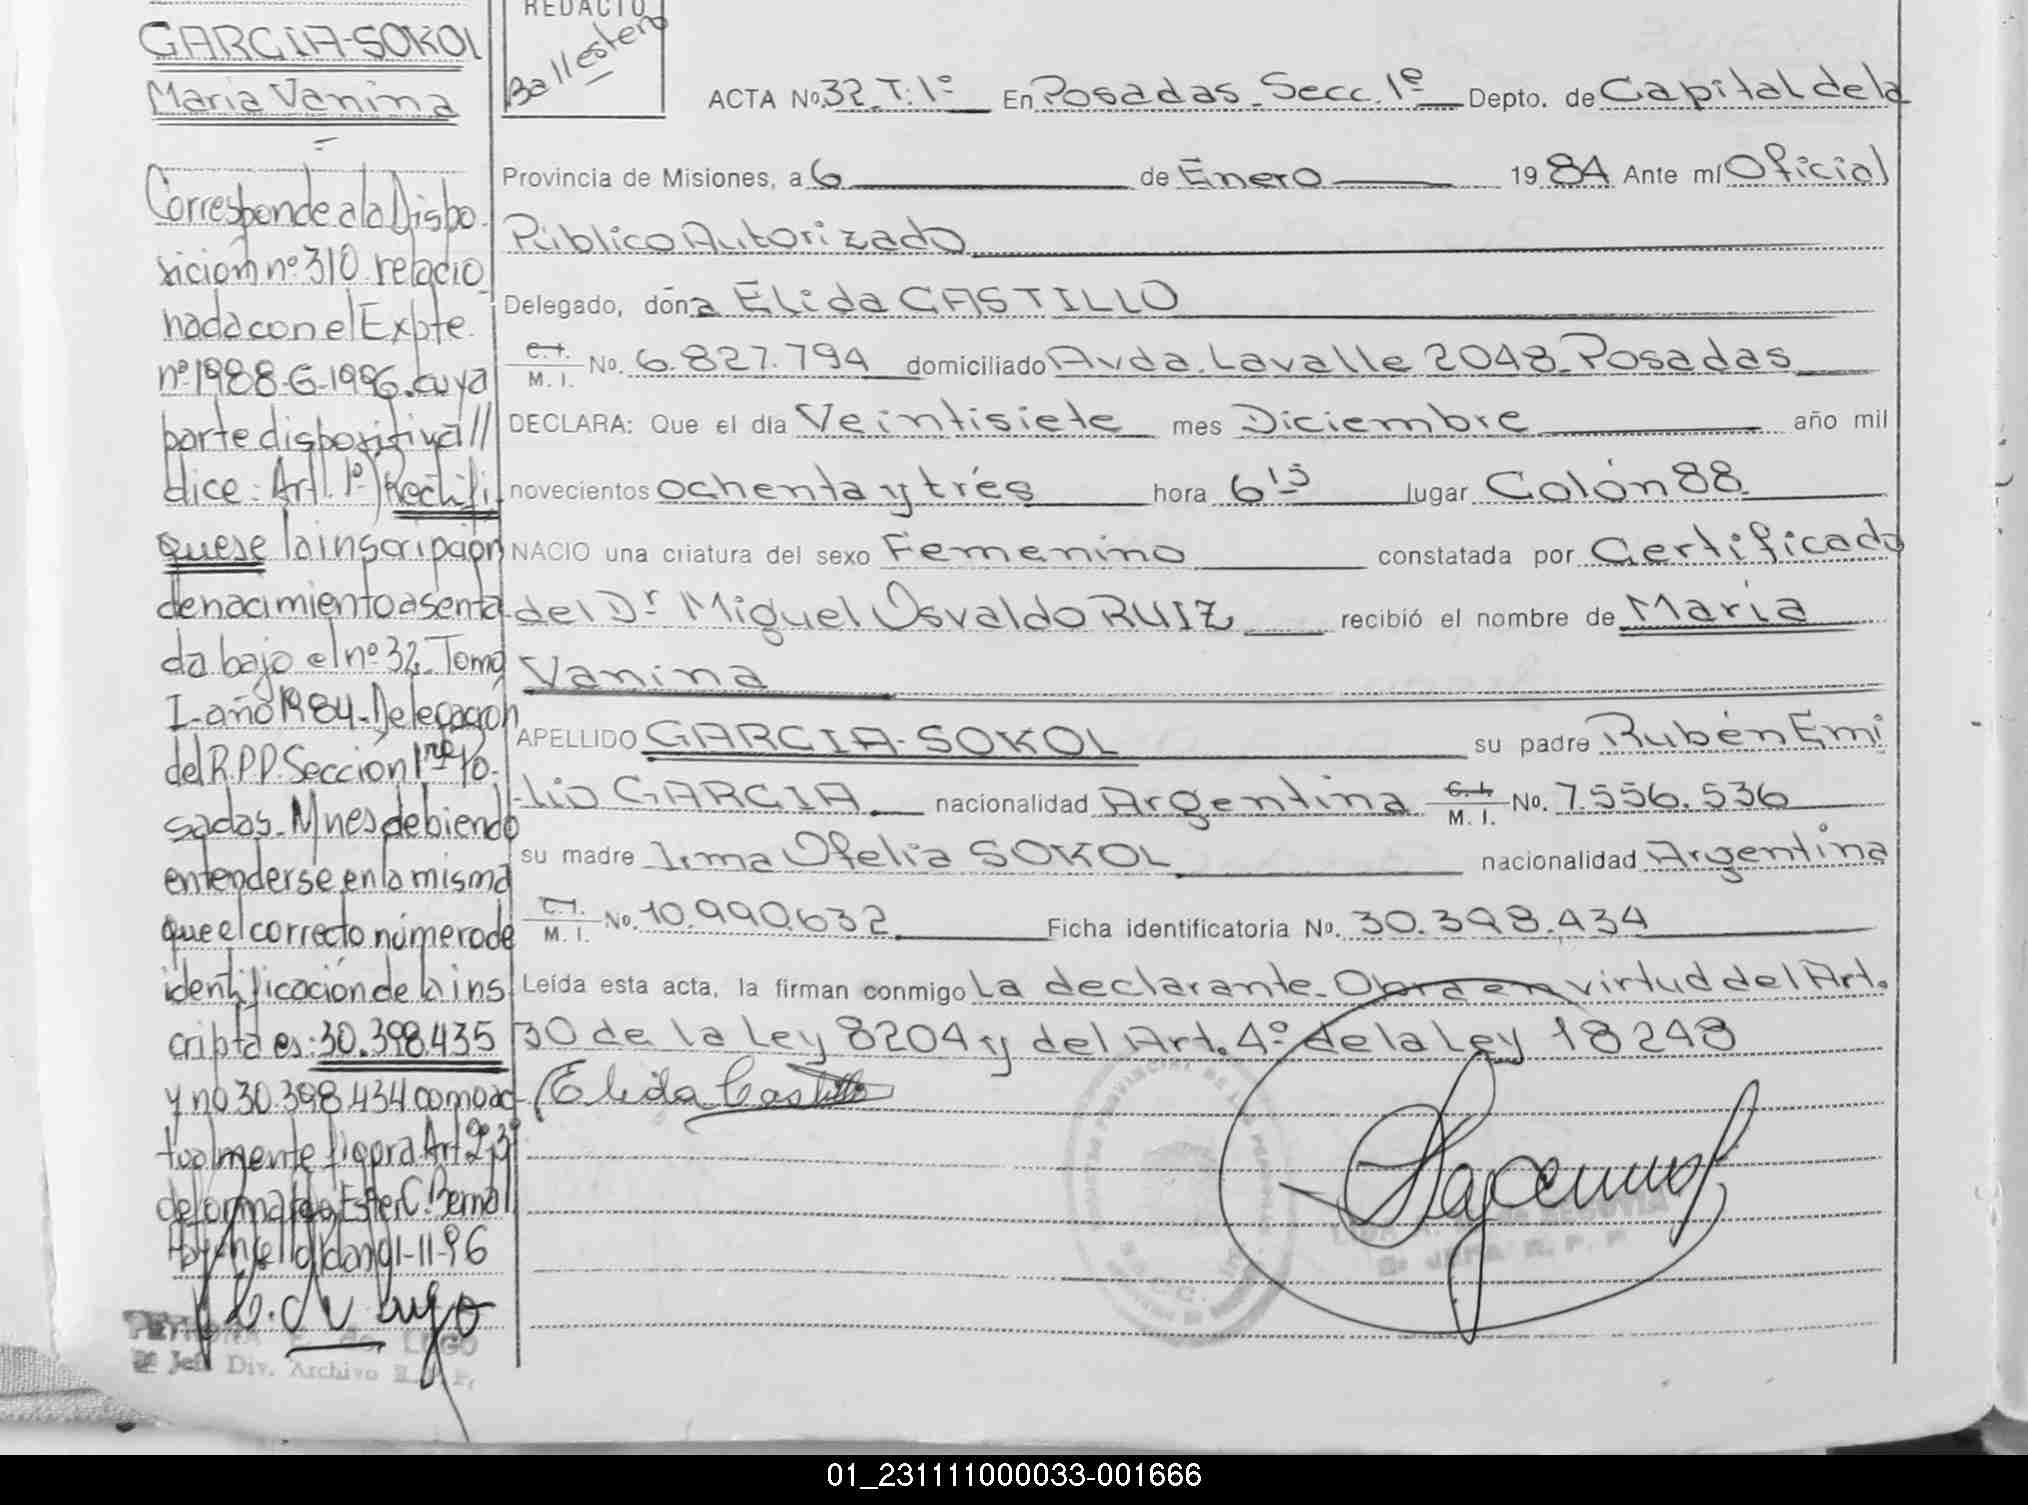 GARCIA-SOKOL
Maria Vanina
=
Corresponde a la Dispo-
sición nº 310 relacio
nada con el Expte.
nº 1988-G-1996. cuya
parte dispositiva//
dice: Art. 1º) Rectifi
quese la inscripción
de nacimiento asenta
da bajo el nº 32. Tomo
I-año 1984-Delegación
del R.P.P. Sección 1ra Po-
sadas-Mnes debiendo
entenderse en la misma
que el correcto número de
identificación de la ins
cripta es: 30.398.435
y no 30.398.434 como ac
tualmente figura Art 2º y 3º
de forma fdo Ester C. Bernal
01-11-96
de LUGO
2º Jefe Div. Archivo R.P.P.
REDACTO
Ballestero
ACTA No. 32. T. 1º En Posadas. Secc. 1º Depto. de Capital de la
Provincia de Misiones, a 6 de Enero 1984 Ante mí Oficial
Público Autorizado
Delegado, doña Elida CASTILLO
C.I. M. I. No. 6.827.794 domiciliado Avda. Lavalle 2048. Posadas
DECLARA: Que el día Veintisiete mes Diciembre año mil
novecientos ochenta y tres hora 6 15 lugar Colón 88
NACIO una criatura del sexo Femenino constatada por Certificado
del Dr Miguel Osvaldo RUIZ recibió el nombre de María
Vanina
APELLIDO GARCIA-SOKOL su padre Rubén Emi
-lio GARCIA nacionalidad Argentina C.I. M. I. No. 7.556.536
su madre Irma Ofelia SOKOL nacionalidad Argentina
C.I. M. I. No. 10.990.632 Ficha identificatoria No. 30.398.434
Leída esta acta, la firman conmigo La declarante. Obra en virtud del Art.
30 de la Ley 8204 y del Art. 4º de la Ley 18248
Elida Castillo
JEFA R. P. P.
01_231111000033-001666